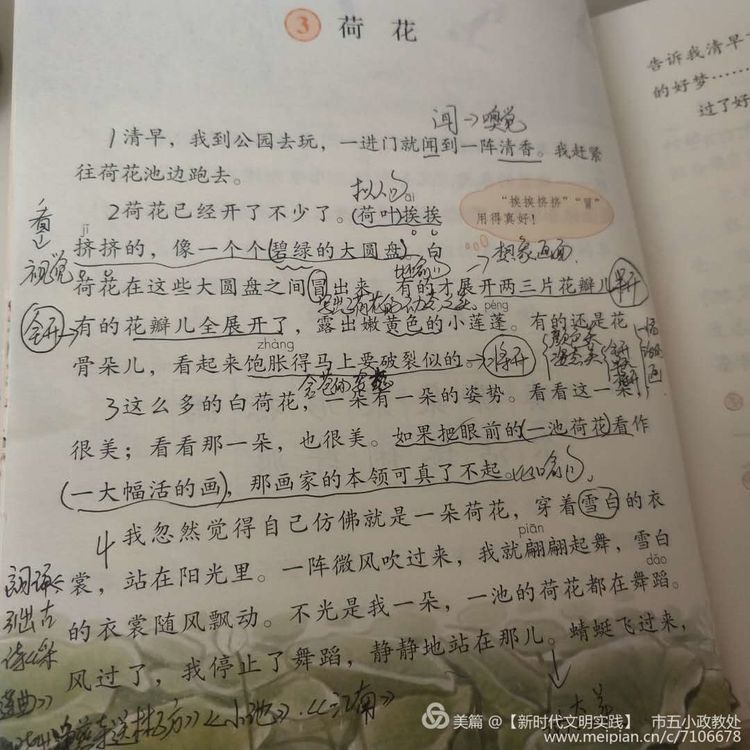 3 荷花
闻→嗅觉
1清早，我到公园去玩，一进门就闻到一阵清香。我赶紧
往荷花池边跑去。
āi
2荷花已经开了不少了。荷叶挨挨
“挨挨挤挤”“冒”
用得真好！
看
视觉
jǐ
挤挤的，像一个个碧绿的大圆盘。白
→想象画面
荷花在这些大圆盘之间冒出来。有的才展开两三片花瓣儿。
péng
全开
有的花瓣儿全展开了，露出嫩黄色的小莲蓬。有的还是花
zhàng
骨朵儿，看起来饱胀得马上要破裂似的。
3这么多的白荷花，一朵有一朵的姿势。看看这一朵，
很美；看看那一朵，也很美。如果把眼前的一池荷花看作
一大幅活的画，那画家的本领可真了不起。
4我忽然觉得自己仿佛就是一朵荷花，穿着雪白的衣
piān
裳，站在阳光里。一阵微风吹过来，我就翩翩起舞，雪白
dǎo
的衣裳随风飘动。不光是我一朵，一池的荷花都在舞蹈。
风过了，我停止了舞蹈，静静地站在那儿。蜻蜓飞过来，
引出古
《小池》《江南》
告诉我清早
的好梦……
过了好
美篇 @【新时代文明实践】 市五小政教处
www.meipian.cn/c/7106678